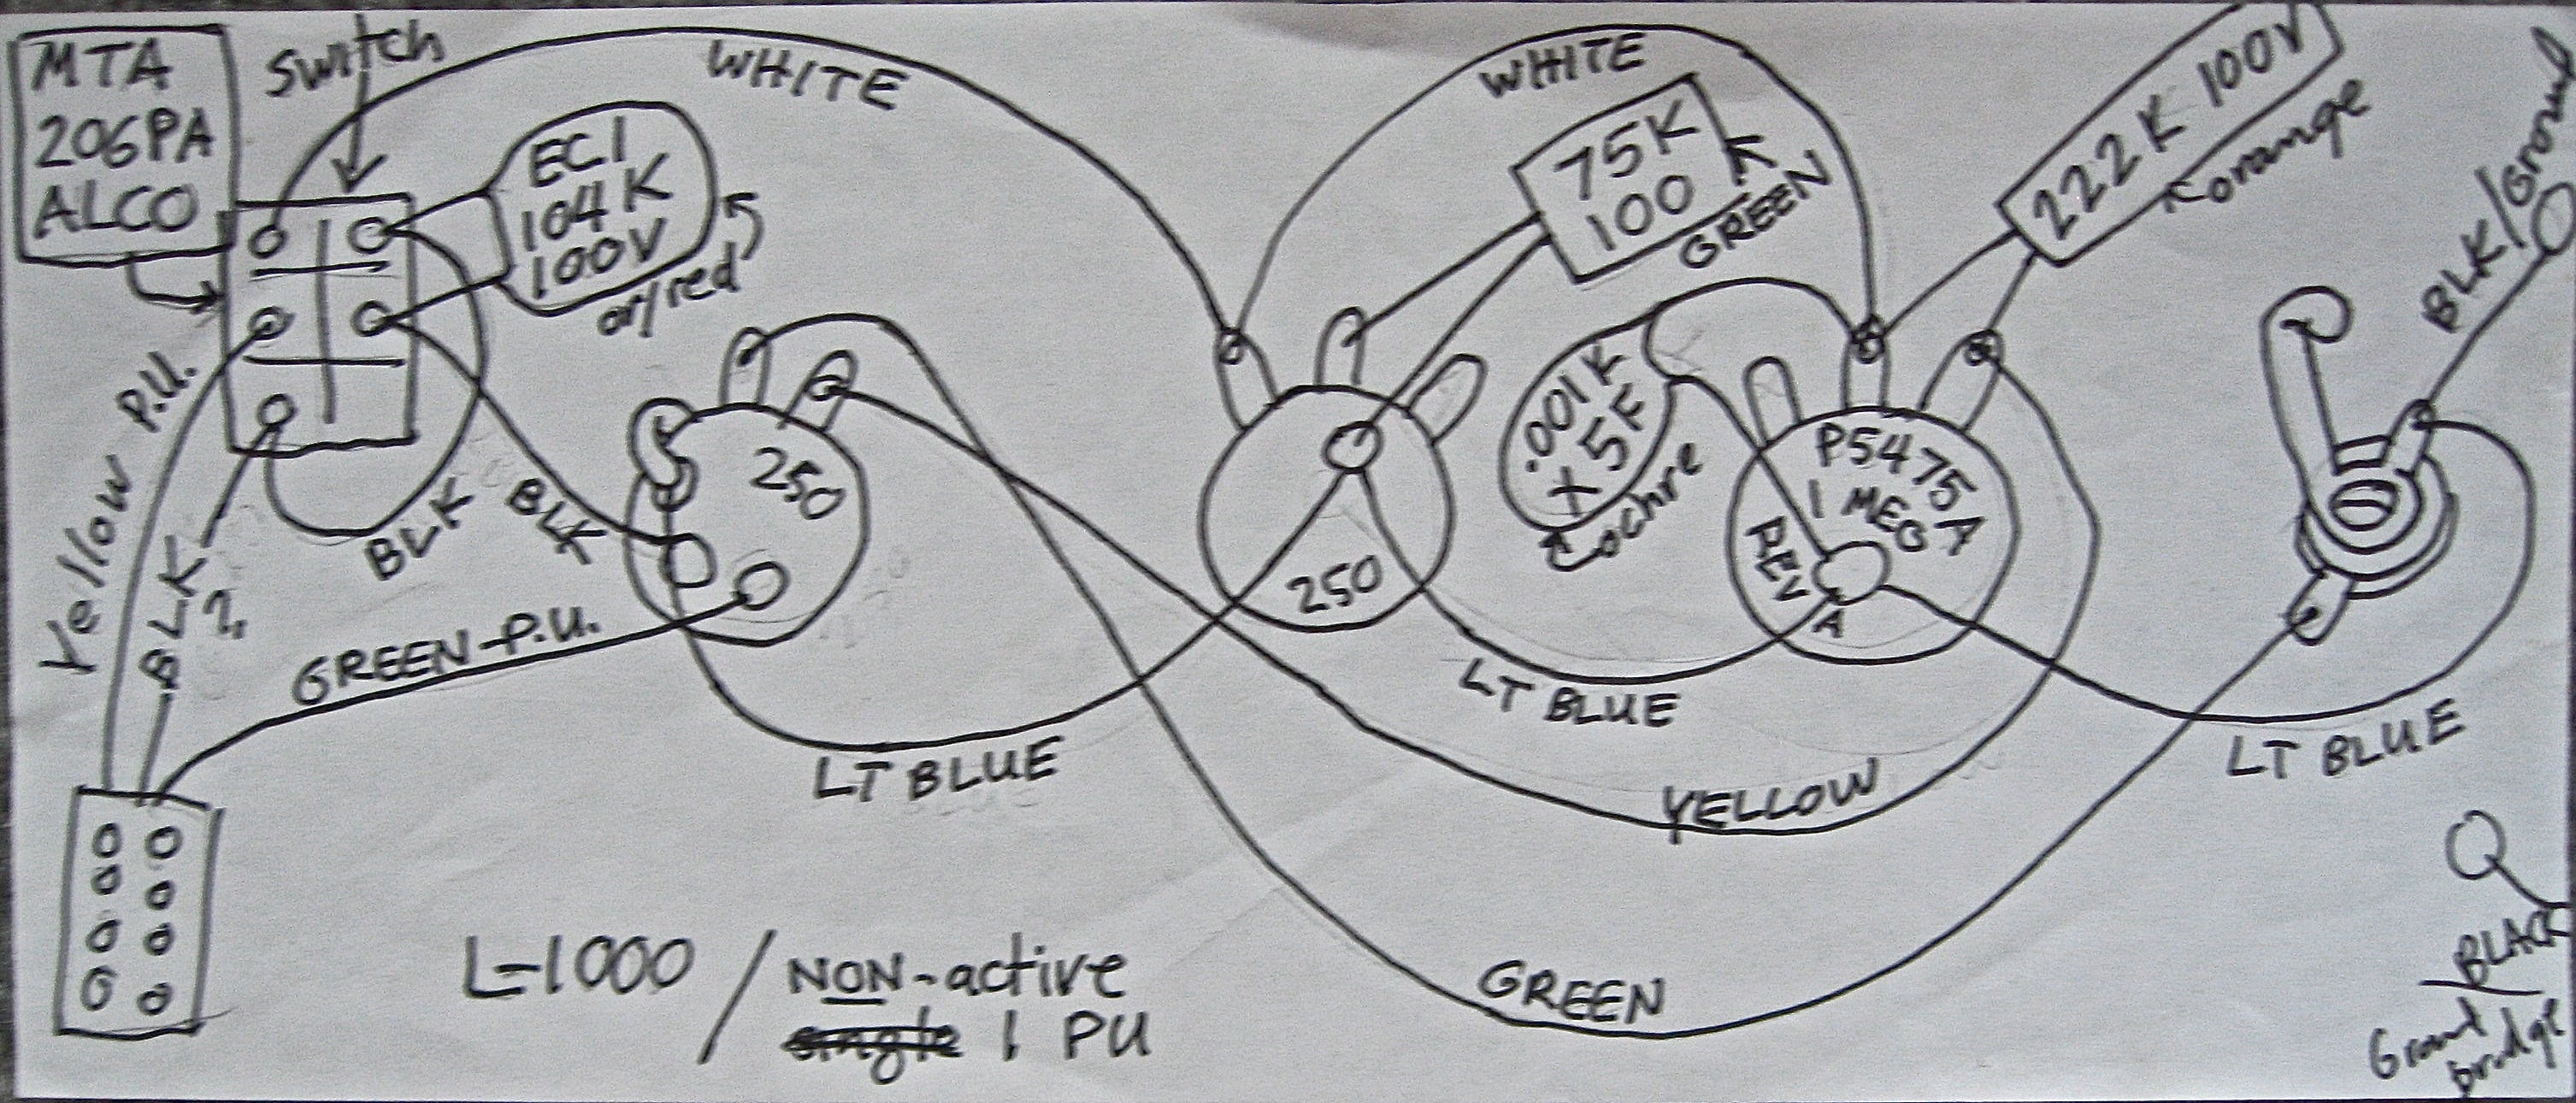 MTA
206PA
ALCO
switch
WHITE
EC1
104K
100V
or/red
Yellow P.U.
BLK
?
BLK
BLK
GREEN-P.U.
250
LT BLUE
WHITE
75K
100
GREEN
250
.001K
X5F
ochre
P5475
1 MEG A
REV
A
222K 100V
orange
BLK/Ground
LT BLUE
LT BLUE
YELLOW
GREEN
BLACK
Ground
bridge
L-1000 / NON-active
single 1 PU